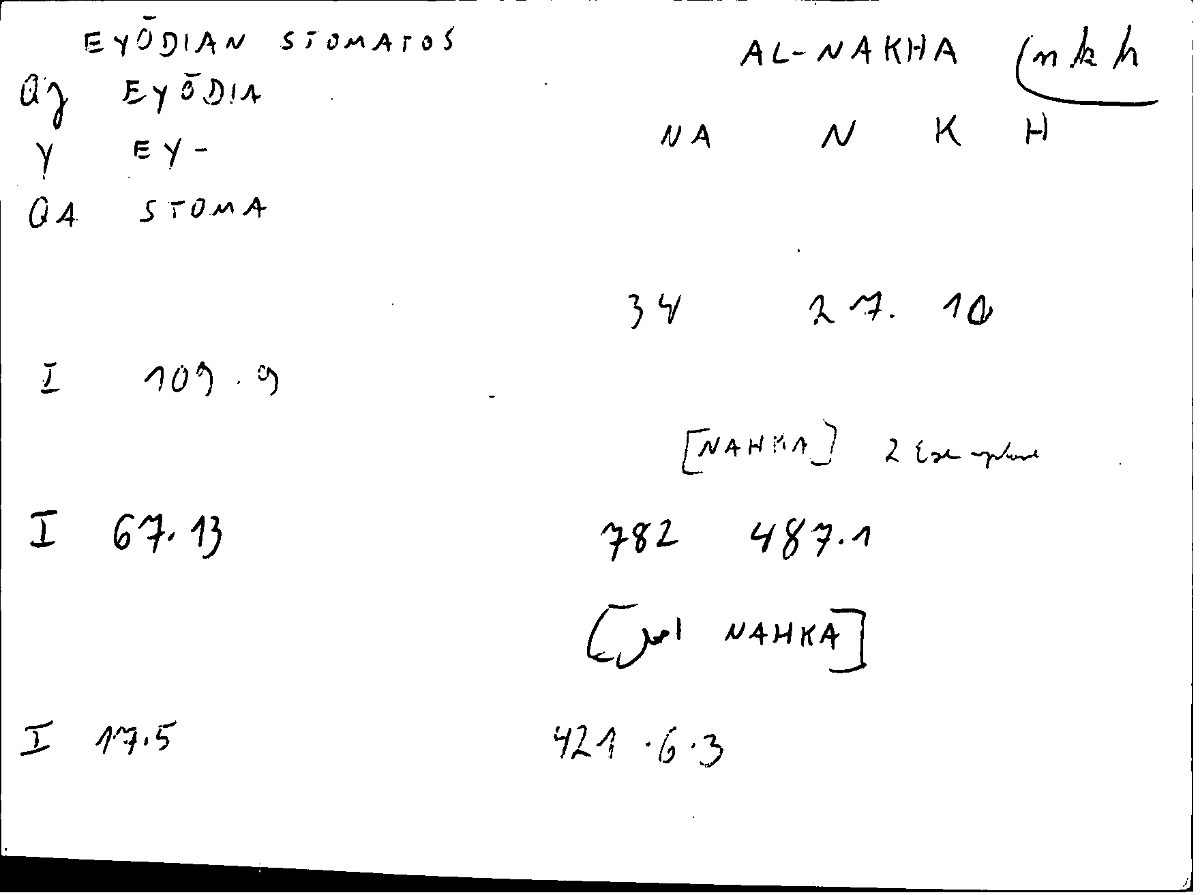 EYŌDIAN STOMATOS AL-NAKHA (nkh
Qz EYŌDIA
NA N K H
Y EY-
QA STOMA
34 27. 10
I 109.9
[NAHKA] 2 Exemplare
I 67.13 782 487.1
[اصل NAHKA]
I 17.5 421.6.3